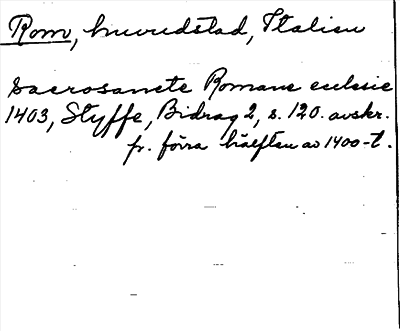 Rom, huvudstad, Italien
sacrosancte Romane ecclesie
1403, Styffe, Bidrag 2, s. 120. avskr.
fr. förra hälften av 1400-t.